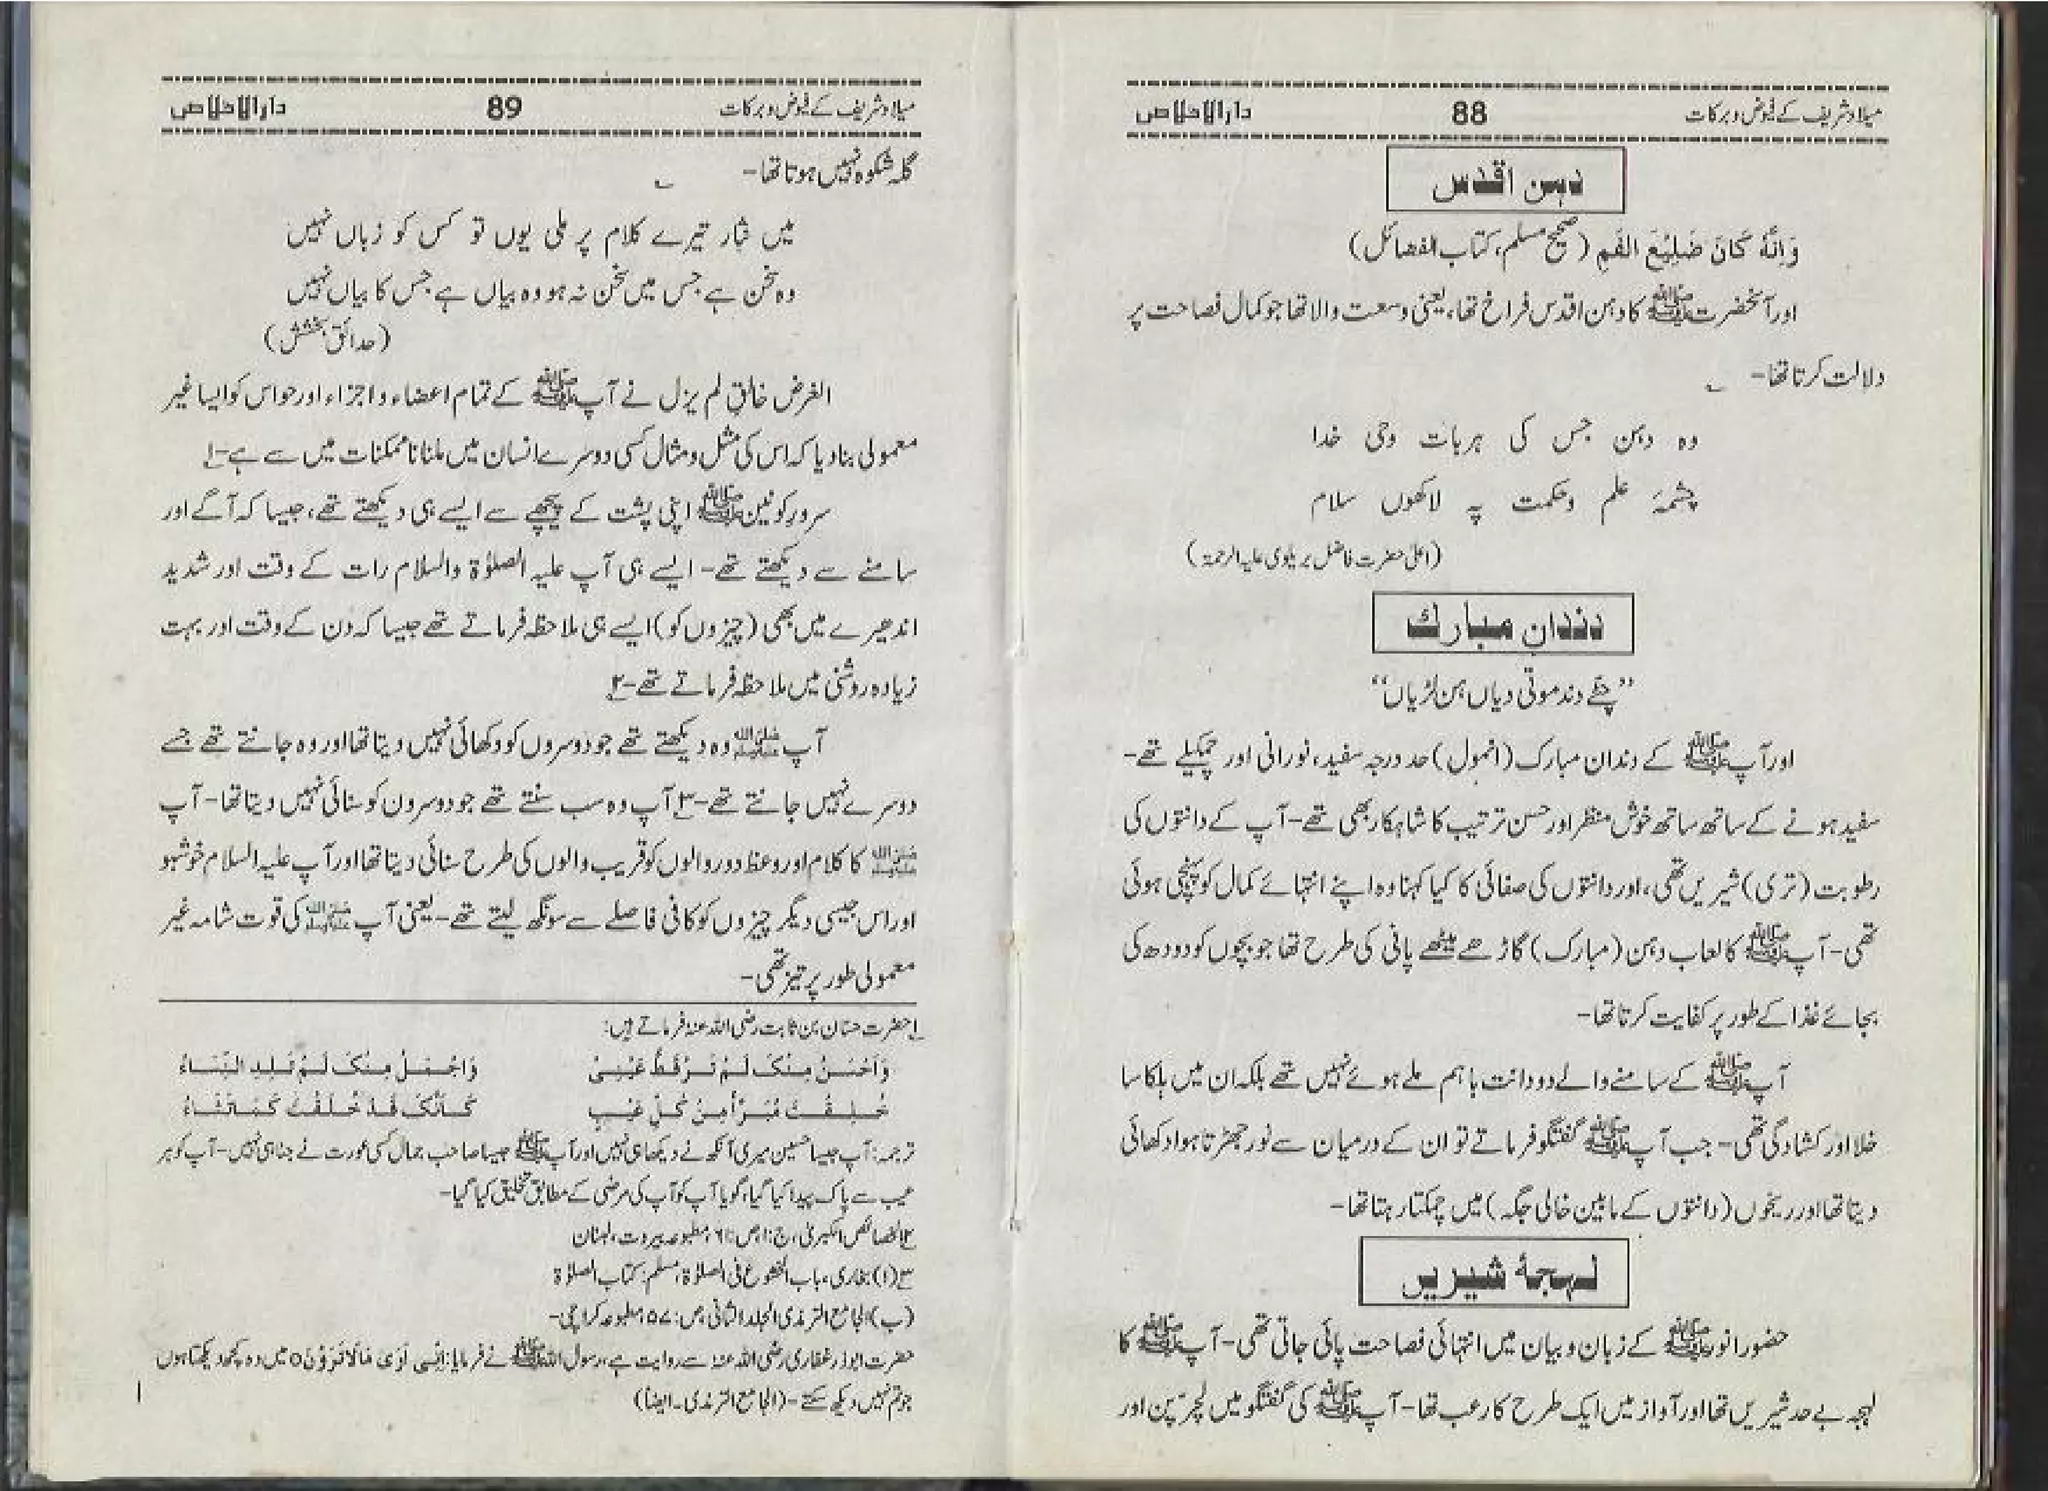 میلاد شریف کے فیوض و برکات 88 دارالاخلاص
دہن اقدس
وَاِنَّهٗ كَانَ ضَلِيْعَ الفَمِ (صحیح مسلم، کتاب الفضائل)
اور آنحضرت ﷺ کا دہن اقدس فراخ تھا، یعنی وسعت والا تھا جو کمال فصاحت پر
دلالت کرتا تھا۔
وہ دہن جس کی ہر بات وحی خدا
چشمۂ علم و حکمت پہ لاکھوں سلام
(اعلیٰ حضرت فاضل بریلوی علیہ الرحمۃ)
دندان مبارك
”چٹے دند موتی دیاں ہن لڑیاں“
اور آپ ﷺ کے دندان مبارک (انمول) حد درجہ سفید، نورانی اور چمکیلے تھے۔
سفید ہونے کے ساتھ ساتھ خوش منظر اور حسن ترتیب کا شاہکار بھی تھے۔ آپ کے دانتوں کی
رطوبت (تری) شیریں تھی، اور دانتوں کی صفائی کا کیا کہنا وہ اپنے انتہائے کمال کو پہنچی ہوئی
تھی۔ آپ ﷺ کا لعاب دہن (مبارک) گاڑھے میٹھے پانی کی طرح تھا جو بچوں کو دودھ کی
بجائے غذا کے طور پر کفایت کرتا تھا۔
آپ ﷺ کے سامنے والے دو دانت باہم ملے ہوئے نہیں تھے بلکہ ان میں ہلکا سا
خلا اور کشادگی تھی۔ جب آپ ﷺ گفتگو فرماتے تو ان کے درمیان سے نور جھڑتا ہوا دکھائی
دیتا تھا اور ریخوں (دانتوں کے مابین خالی جگہ) میں چمکتا رہتا تھا۔
لہجۂ شیریں
حضور انور ﷺ کے زبان و بیان میں انتہائی فصاحت پائی جاتی تھی۔ آپ ﷺ کا
لہجہ بے حد شیریں تھا اور آواز میں ایک طرح کا رعب تھا۔ آپ ﷺ کی گفتگو میں لچر پن اور
میلاد شریف کے فیوض و برکات 89 دارالاخلاص
گلہ شکوہ نہیں ہوتا تھا۔
میں نثار تیرے کلام پر ملی یوں تو کس کو زباں نہیں
وہ سخن ہے جس میں سخن نہ ہو وہ بیاں ہے جس کا بیاں نہیں
(حدائق بخشش)
الغرض خالق لم یزل نے آپ ﷺ کے تمام اعضاء و اجزاء اور حواس کو ایسا غیر
معمولی بنا دیا کہ اس کی مثل و مثال کسی دوسرے انسان میں ملنا ناممکنات میں سے ہے۔۱
سرور کونین ﷺ اپنی پشت کے پیچھے سے ایسے ہی دیکھتے تھے، جیسا کہ آگے اور
سامنے سے دیکھتے تھے۔ ایسے ہی آپ علیہ الصلوٰۃ والسلام رات کے وقت اور شدید
اندھیرے میں بھی (چیزوں کو) ایسے ہی ملاحظہ فرماتے تھے جیسا کہ دن کے وقت اور بہت
زیادہ روشنی میں ملاحظہ فرماتے تھے۔۲
آپ ﷺ وہ دیکھتے تھے جو دوسروں کو دکھائی نہیں دیتا تھا اور وہ جانتے تھے جسے
دوسرے نہیں جانتے تھے۔۳ آپ وہ سب سنتے تھے جو دوسروں کو سنائی نہیں دیتا تھا۔ آپ
ﷺ کا کلام اور وعظ دور والوں کو قریب والوں کی طرح سنائی دیتا تھا اور آپ علیہ السلام خوشبو
اور اس جیسی دیگر چیزوں کو کافی فاصلے سے سونگھ لیتے تھے۔ یعنی آپ ﷺ کی قوت شامہ غیر
معمولی طور پر تیز تھی۔
۱ حضرت حسان بن ثابت رضی اللہ عنہ فرماتے ہیں:
وَاَحْسَنُ مِنْكَ لَمْ تَرَ قَطُّ عَيْنِىْ وَاَجْمَلُ مِنْكَ لَمْ تَلِدِ النِّسَاءُ
خُلِقْتَ مُبَرَّأً مِنْ كُلِّ عَيْبٍ كَاَنَّكَ قَدْ خُلِقْتَ كَمَا تَشَاءُ
ترجمہ: آپ جیسا حسین میری آنکھ نے دیکھا ہی نہیں اور آپ ﷺ جیسا صاحب جمال کسی عورت نے جنا ہی نہیں۔ آپ کو ہر
عیب سے پاک پیدا کیا گیا، گویا آپ کو آپ کی مرضی کے مطابق تخلیق کیا گیا۔
۲ الخصائص الکبریٰ، ج:۱، ص:۶۱، مطبوعہ بیروت، لبنان
۳ (ا) بخاری، باب الخشوع فی الصلاۃ، مسلم: کتاب الصلاۃ
(ب) الجامع الترمذی المجلد الثانی، ص:۵۷، مطبوعہ کراچی۔
حضرت ابوذر غفاری رضی اللہ عنہ سے روایت ہے، رسول اللہ ﷺ نے فرمایا: اِنِّیْ اَرٰی مَا لَا تَرَوْنَ o میں وہ کچھ دیکھتا ہوں
جو تم نہیں دیکھ سکتے۔ (الجامع الترمذی۔ ایضاً)